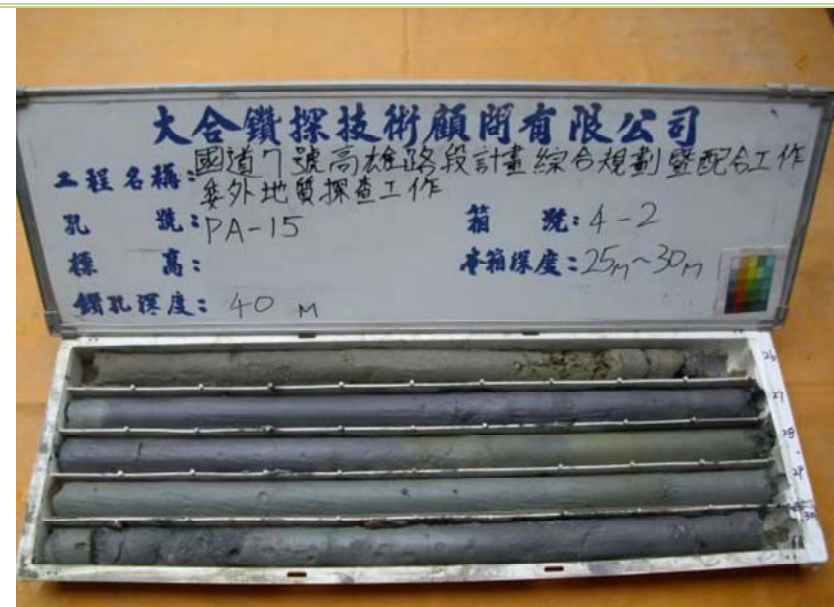 大合鑽探技術顧問有限公司
工程名稱:國道7號高雄路段計畫綜合規劃暨配合工作
委外地質探查工作
孔 號:PA-15 箱 號:4-2
標 高: 本箱深度:25M~30M
鑽孔深度: 40 M
26
27
28
29
30